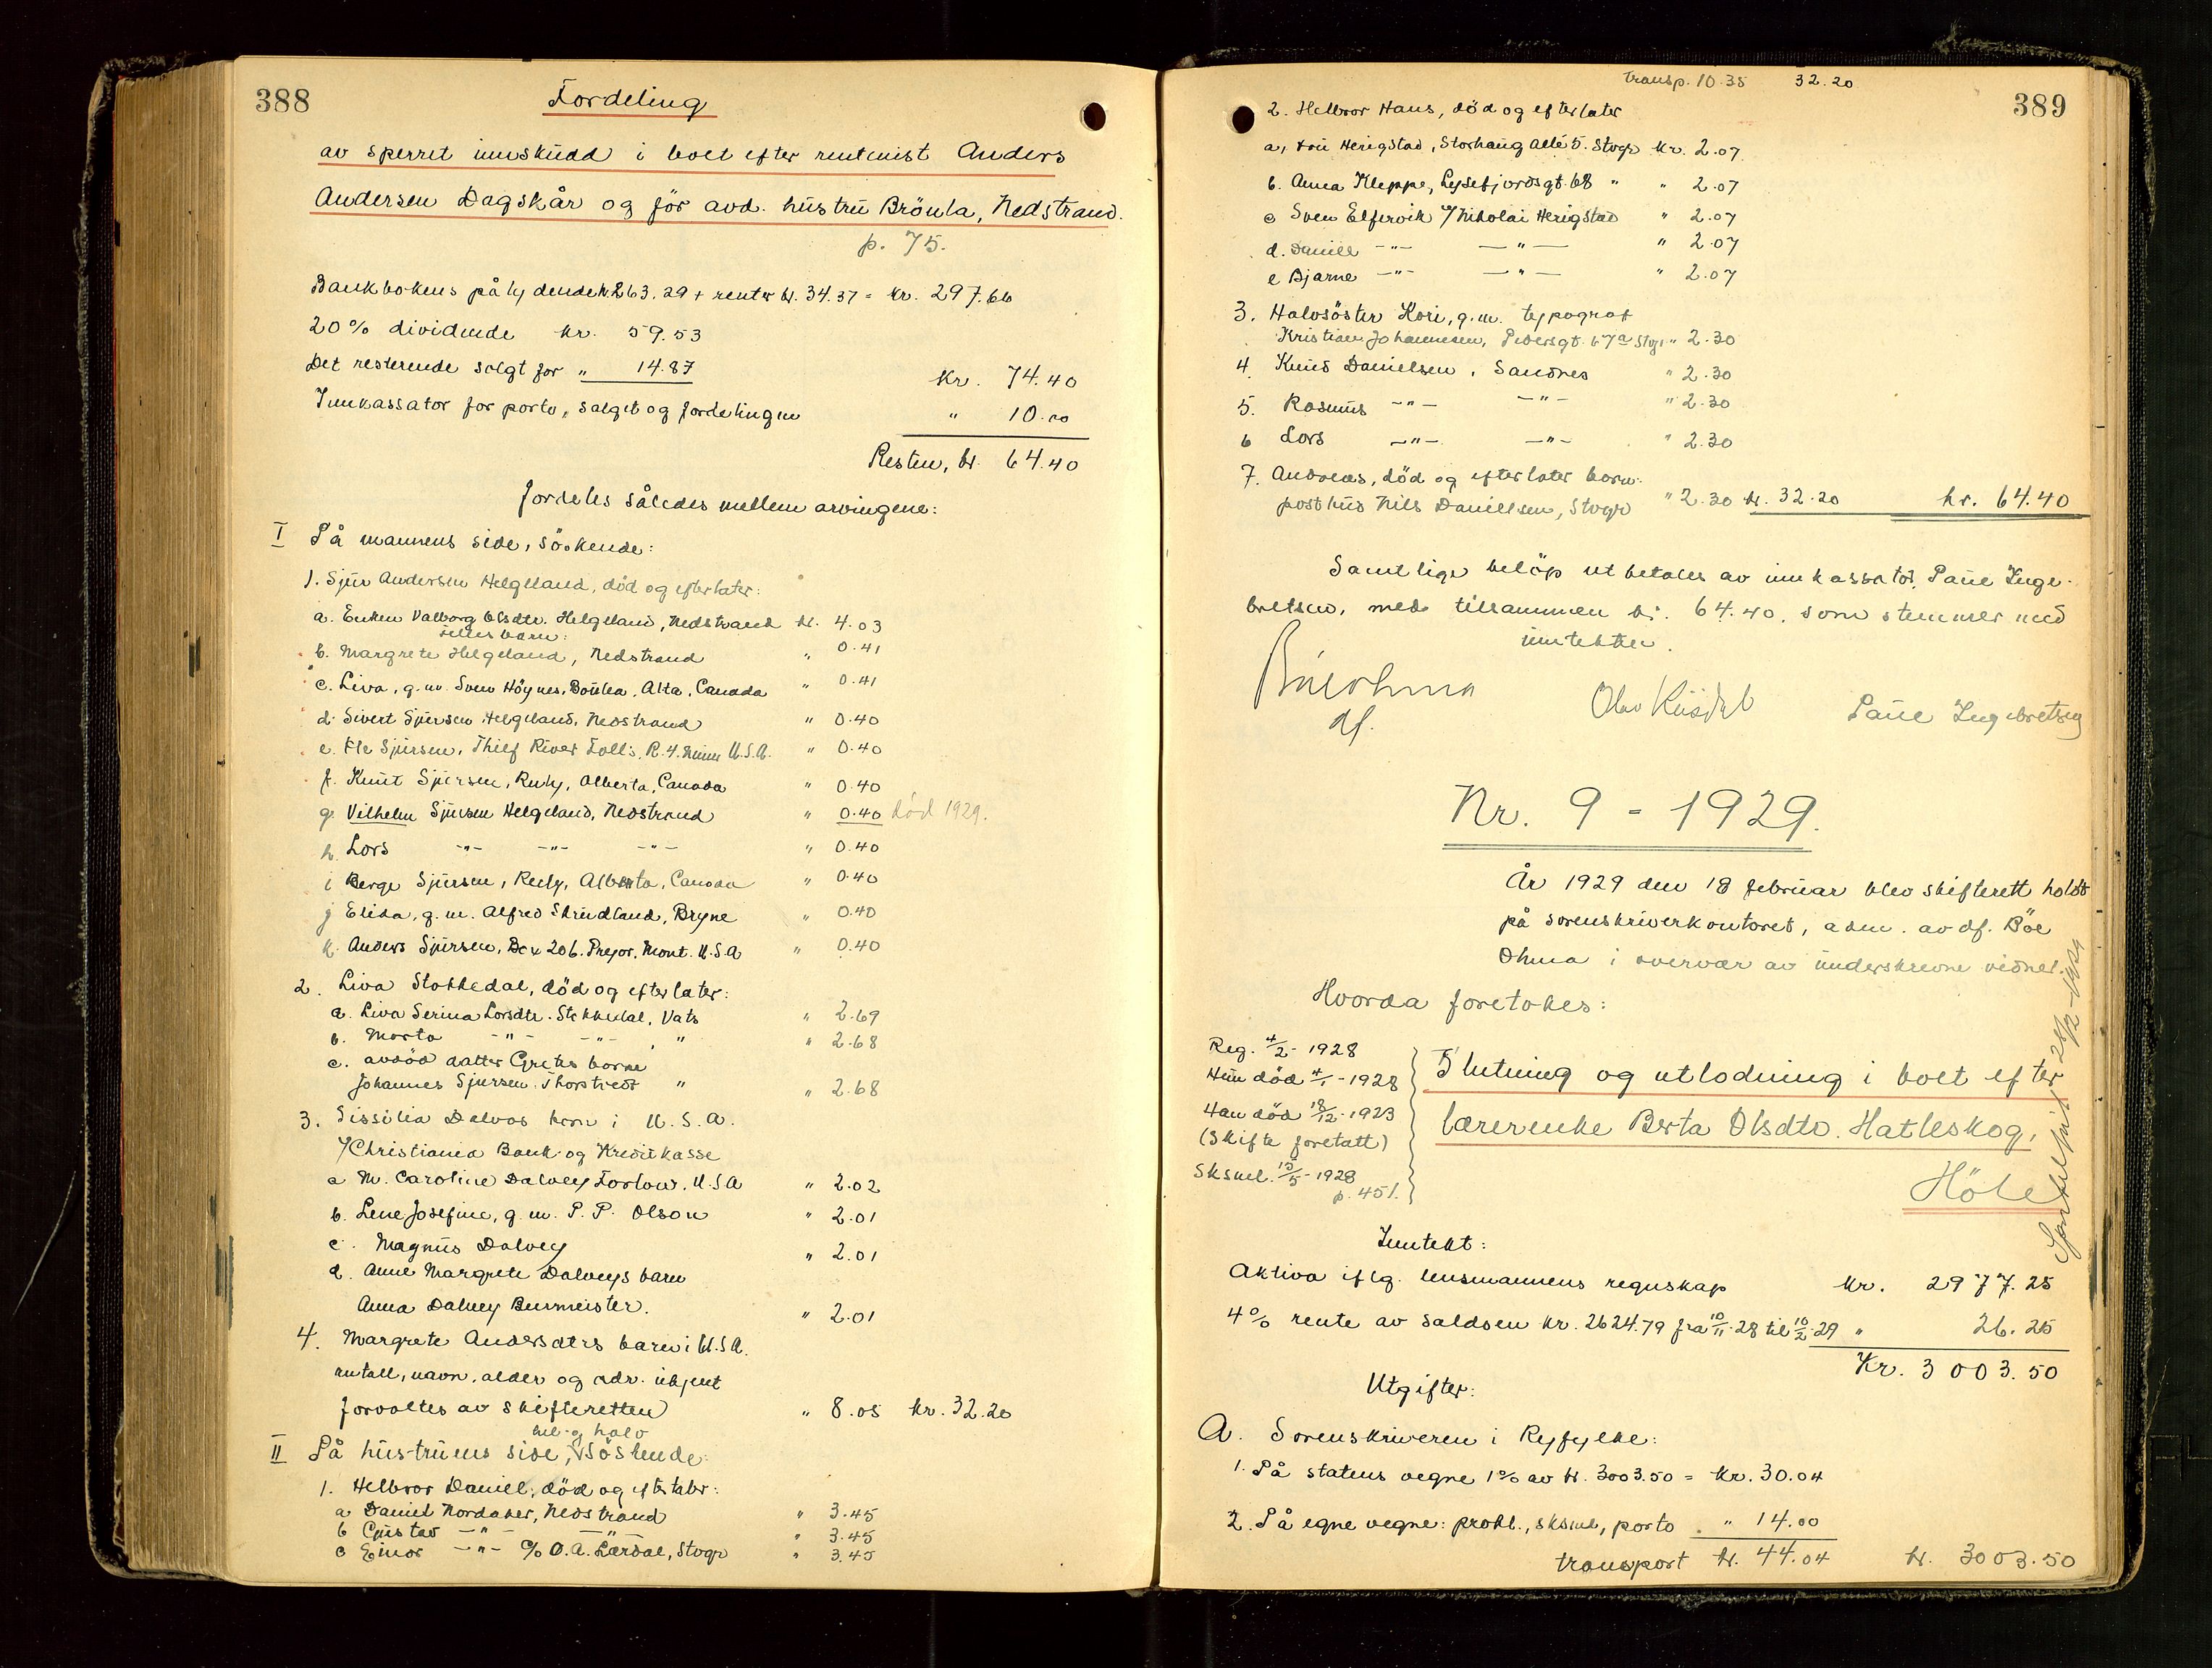 388
Fordeling
av sperret innskudd i boet efter rentenist Anders
Andersen Dagskår og før avd. hustru Brönla, Nedstrand.
p. 75.
Bankbokens pålydende kr. 263.29 + renter kr. 34.37 = kr. 297.66
20% dividende kr. 59.53
Det resterende solgt for " 14.87 kr. 74.40
Innkassator for porto, salget og fordelingen " 10.00
Resten, kr. 64.40
fordeles således mellem arvingene:
I På mannens side, söskende:
1. Sjur Andersen Helgeland, död og efterlater:
a. Enken Valborg Olsdtr. Helgeland, Nedstrand kr. 4.03
felles barn:
b. Margrete Helgeland, Nedstrand " 0.41
c. Liva, g.m. Sven Höynes, Alta, Canada " 0.41
d. Sivert Sjursen Helgeland, Nedstrand " 0.40
e. Ole Sjursen, Thief River Falls, R.4. Minn U.S.A. " 0.40
f. Knut Sjursen, Ruly, Alberta, Canada " 0.40
g. Vilhelm Sjursen Helgeland, Nedstrand " 0.40 död 1929.
h. Lars -"- -"- -"- " 0.40
i Berge Sjursen, Ruly, Alberta, Canada " 0.40
j Elida, g.m. Alfred Skrudland, Bryne " 0.40
k. Anders Sjursen, Box 206. Pryor, Mont. U.S.A " 0.40
2. Liva Stokkedal, död og efterlater:
a. Liva Serina Larsdtr. Stokkedal, Vats " 2.69
b. Marta -"- -"- " " 2.68
c. avdöd datter Gretes barn
Johannes Sjursen Thorstvedt " " 2.68
3. Sissilia Dalvas barn i U.S.A.
v/Christiania Bank og Kreditkasse
a M. Caroline Dalvey Forlow. U.S.A " 2.02
b. Lene Josefine, g.m. P. P. Olson " 2.01
c. Magnus Dalvey " 2.01
d. Anne Margrete Dalveys barn
Anna Dalvey Burmeister. " 2.01
4. Margrete Andersdtrs barn i U.S.A.
antall, navn, alder og adr. ukjent
forvaltes av skifteretten " 8.05 kr. 32.20
hel- og halv
II På hustruens side, söskende:
1. Helbror Daniel, död og efterlater:
a Daniel Nordaker, Nedstrand " 3.45
b Gustav -"- -"- " 3.45
c Einar -"- c/o O.A. Lærdal, Stvgr " 3.45
389
transp. 10.35 32.20
2. Helbror Hans, död og efterlater
a, Herigstad, Storhaug Allé 5. Stvgr kr. 2.07
b. Anna Kleppe, Lysefjordsgt. 68 " " 2.07
c Sven Elfervik v/ Nikolai Herigstad " 2.07
d. Daniel -"- -"- " 2.07
e Bjarne -"- -"- " 2.07
3. Halvsöster Kari, g.m. typograf
Kristian Johannesen, Pedersgt. 67a Stvgr " 2.30
4. Knud Danielsen, Sandnes " 2.30
5. Rasmus -"- -"- " 2.30
6 Lars -"- -"- " 2.30
7. Andreas, död og efterlater barn:
posthus Nils Danielsen, Stvgr " 2.30 kr. 32.20 kr. 64.40
Samtlige belöp utbetales av innkassator, Paul Inge-
bretsen, med tilsammen kr. 64.40. som stemmer med
inntekten.
Böe Ohma
df.
Olav Paul Ingebretsen
Nr. 9 - 1929.
År 1929 den 18 februar blev skifterett holdt
på sorenskriverkontoret, adm. av df. Böe
Ohma i overvær av underskrevne vidner.
Hvorda foretokes:
Reg. 4/2 - 1928
Hun död 4/1 - 1928
Han död 18/12 - 1923
(Skifte foretatt)
Skskl. 15/5 - 1928
p. 451.
Slutning og utlodning i boet efter
lærerenke Berta Olsdtr. Hatleskog,
Höle
Inntekt:
Aktiva iflg. lensmannens regnskap kr. 2977.25
4% rente av saldoen kr. 2624.79 fra 10/11-28 til 10/2-29 " 26.25
Kr. 3003.50
Utgifter:
A. Sorenskriveren i Ryfylke:
1. På statens vegne 1% av kr. 3003.50 = kr. 30.04
2. På egne vegne: prokl., skskl, porto " 14.00
transport kr. 44.04 kr. 3003.50